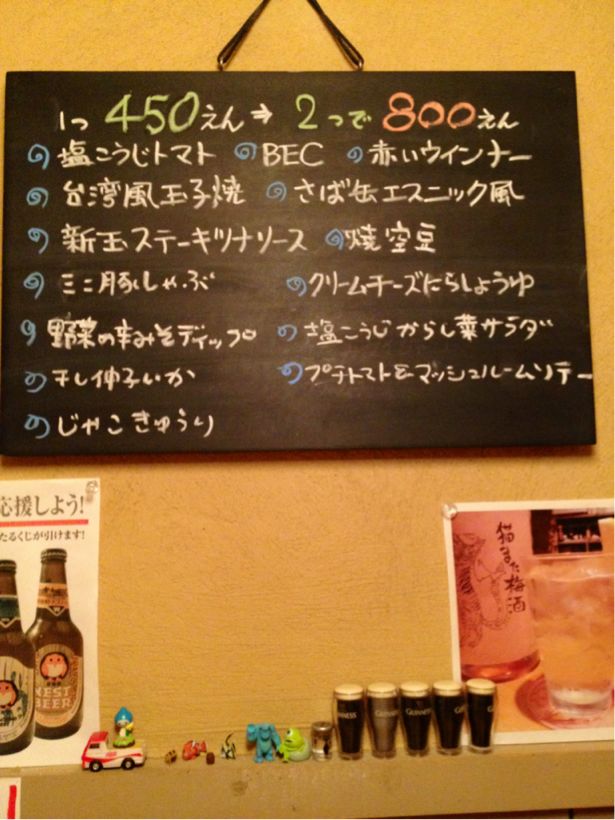 1つ 450えん⇒ 2つで 800えん
塩こうじトマト BEC 赤いウインナー
台湾風玉子焼 さば缶エスニック風
新玉ステーキツナソース 焼空豆
ミニ豚しゃぶ クリームチーズにらしょうゆ
野菜の辛みそディップ 塩こうじからし菜サラダ
干し伸子いか プチトマト&マッシュルームソテー
じゃこきゅうり
応援しよう!
たるくじが引けます!
NEST
BEER
猫また梅酒
GUINNESS
GUINNESS